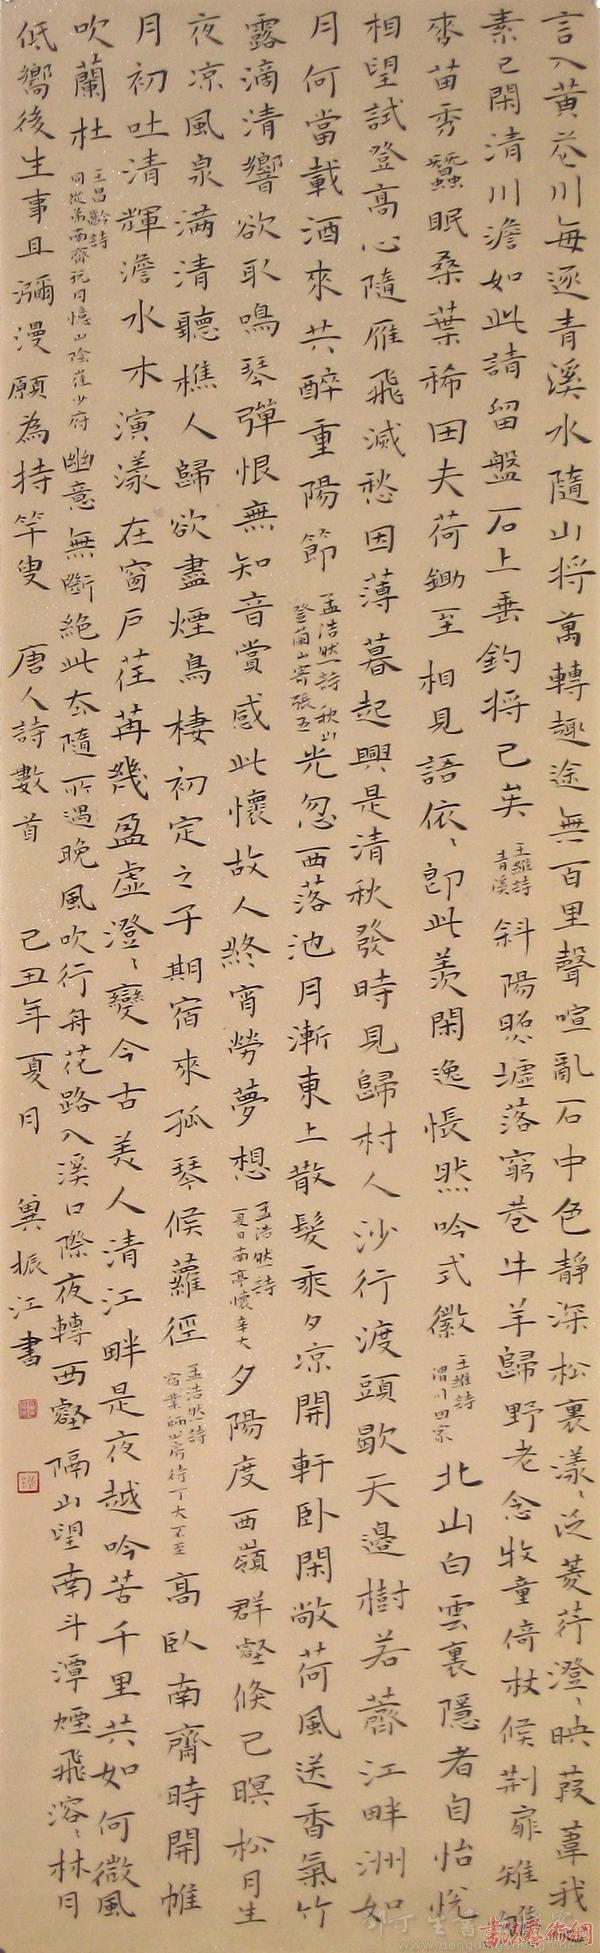 言入黃花川每逐青溪水隨山將萬轉趣途無百里聲喧亂石中色靜深松裏漾〻泛菱荇澄〻映葭葦我
素已閑清川澹如此請留盤石上垂釣將已矣 王維詩 青溪 斜陽照墟落窮巷牛羊歸野老念牧童倚杖候荊扉雉雊
麥苗秀蠶眠桑葉稀田夫荷鋤至相見語依〻即此羨閑逸悵然吟式微 王維詩 渭川田家 北山白雲裏隱者自怡悅
相望試登高心隨雁飛滅愁因薄暮起興是清秋發時見歸村人沙行渡頭歇天邊樹若薺江畔洲如
月何當載酒來共醉重陽節 孟浩然詩 秋山登蘭山寄張五 光忽西落池月漸東上散髮乘夕涼開軒臥閑敞荷風送香氣竹
露滴清響欲取鳴琴彈恨無知音賞感此懷故人終宵勞夢想 孟浩然詩 夏日南亭懷辛大 夕陽度西嶺群壑倏已暝松月生
夜涼風泉滿清聽樵人歸欲盡煙鳥棲初定之子期宿來孤琴候蘿徑 孟浩然詩 宿業師山房待丁大不至 高臥南齋時開帷
月初吐清輝澹水木演漾在窗戶荏苒幾盈虛澄〻變今古美人清江畔是夜越吟苦千里共如何微風
吹蘭杜 王昌齡詩 同從弟南齋玩月憶山陰崔少府 幽意無斷絕此去隨所遇晚風吹行舟花路入溪口際夜轉西壑隔山望南斗潭煙飛溶〻林月
低嚮後生事且瀰漫願為持竿叟 唐人詩數首 己丑年夏月 冀振江書
書法藝術網